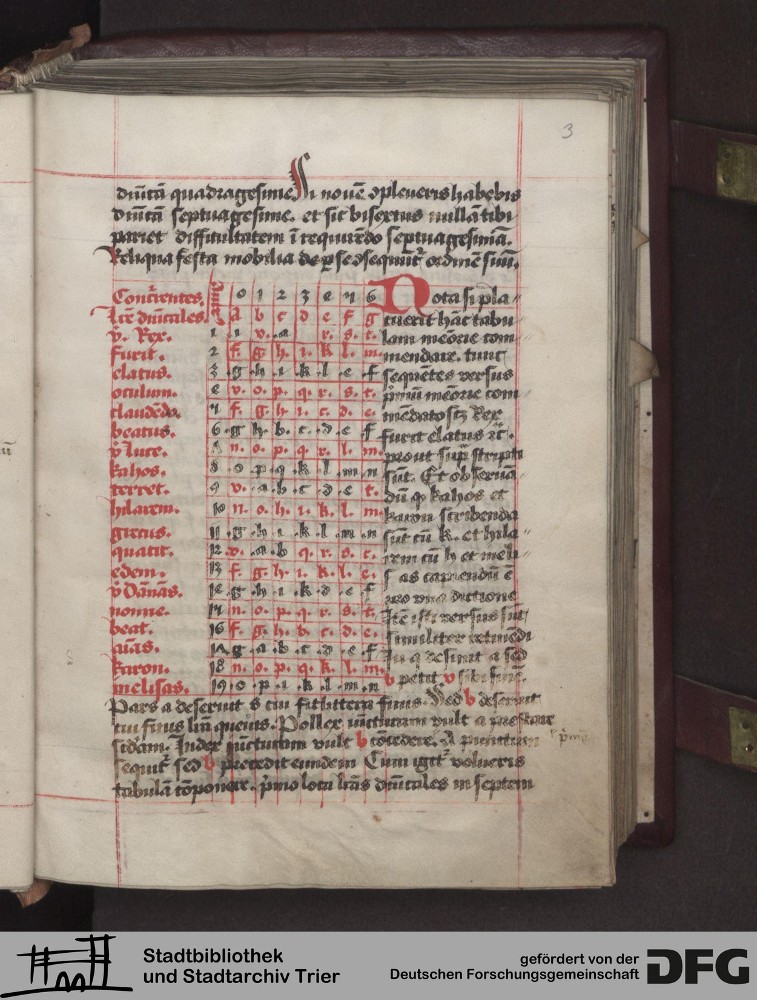 3
diūtā quadragesime Si nouē ɔpleueris habebis
diūtā septuagesime. et sic bisextus nullā tibi
pariet difficultatem ī requirēdo septuagesimā.
Reliqua festa mobilia de ꝑ se ɔsequūt ordinē suū.
Concurrentes. 0 1 2 3 4 5 6
Lrē dnicales. A b c d e f g
v̓. Rex. 1
furit. 2 f. g. h. i. k. l. m.
elatus. 3 g h i k l e f
oculum. 4 v. o. p. q. r. s. t.
claudēdo. 5 f. g. h. i. c. d. e.
beatus. 6 g h b c d e f
v̓ luce. n. o. p. q. r. l. m.
kahos. 8 o p q k l m n
terret. 9 v. a b c d e t.
hilarem. 10 n. o. h. i. k. l. m.
gretus. 11 g h i k l m n
quatit. 12 v. a b q. r. s. t.
edem. 13 f. g. h. i. k. l. e.
v̓ Dānās. 14 g h i k d e f
nonne. 15 n. o. p. q. r. s. t.
beat. 16 f. g. h. b. c. d. e.
auas. 17 g a b c d e f
karon. 18 n. o. p. q. k. l. m.
melisas. 19 o p i k l m n
Nota si pla-
cuerit hāc tabu
lam meōrie com
mendare. tunc
sequētes versus
p̓mū meōrie com
mēdato scꝫ Rex
furit elatus rc̄.
prout supͣ scripti
sūt. Et obseruā
dū ꝙ kahos et
karon scribenda
sūt cū k. et hila
rem cū h et meli
sas capiendū ē
pro vna dictione
Itē isti versus sūt
similiter retinēdi
In a desinit a sed
b petit v sibi finē.
Pars a deseruit s cui fit littera finis. Sed b deseruit
cui finis līn̄ queuis. Pollex iūcturam vult a prestare
sidām. Index iūcturam vult b cōcedere. A punctum
p̓mo
sequit̄ sed b precedit eundem Cum igit̄ volueris
tabulā cōponere. p̓mo loca lrās dnicales in septem
Stadtbibliothek
und Stadtarchiv Trier
gefördert von der
Deutschen Forschungsgemeinschaft
DFG